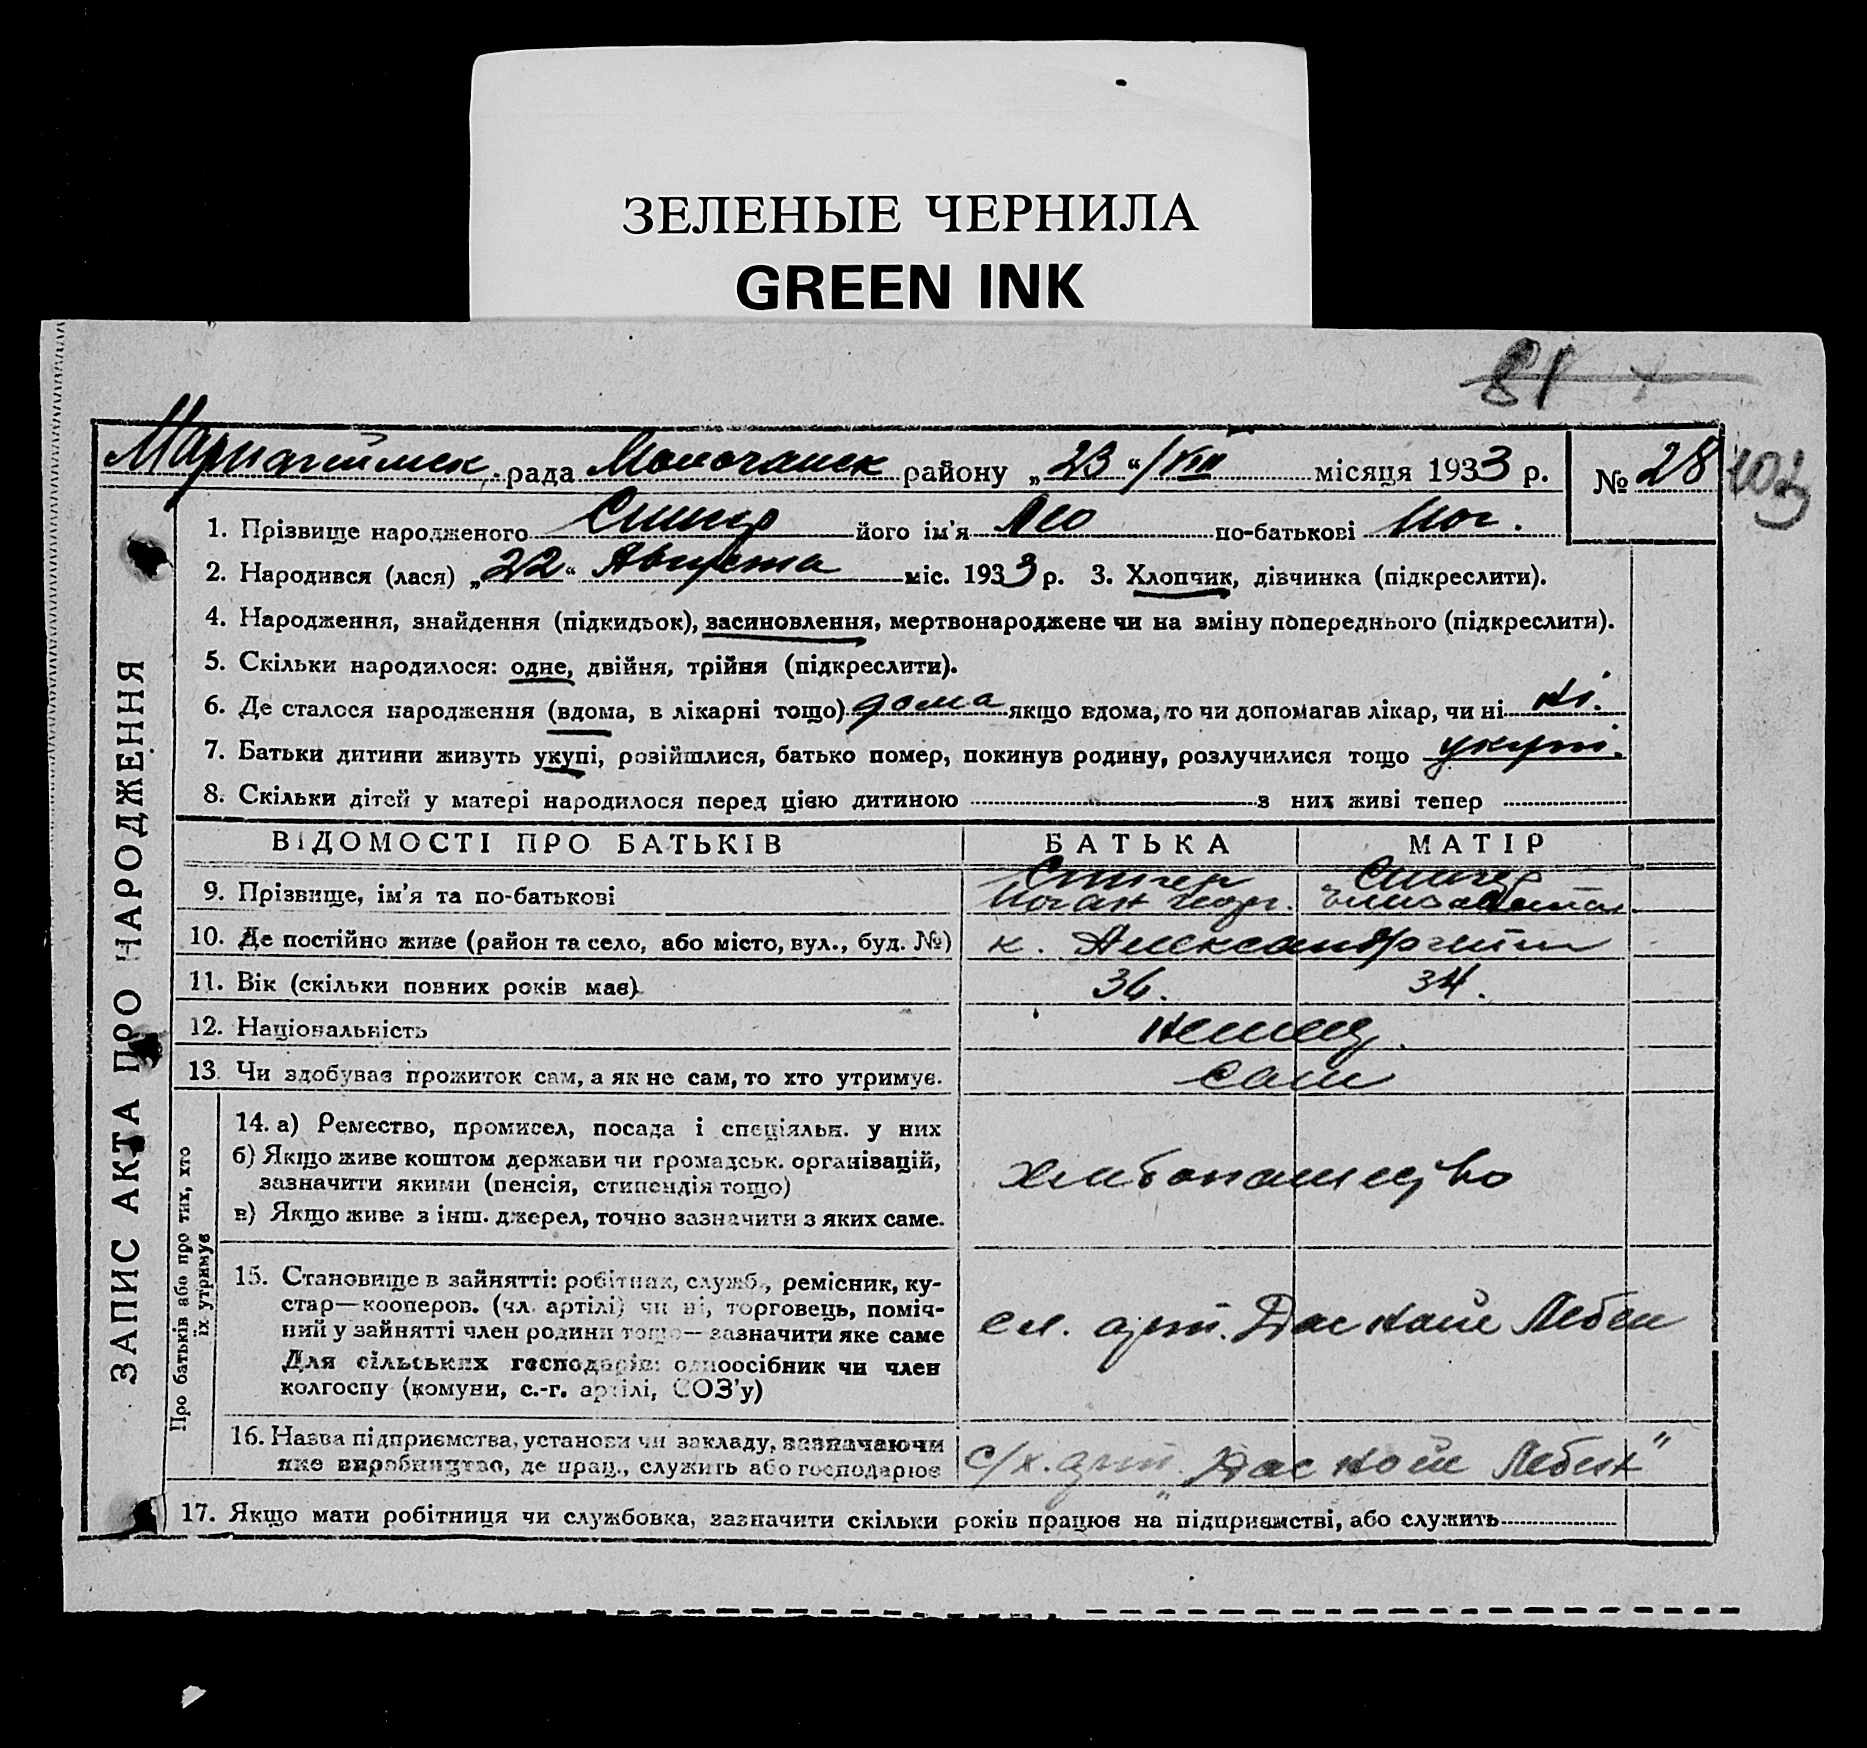 ЗЕЛЕНЫЕ ЧЕРНИЛА
GREEN INK
81
рада Молочанск району „23“/VIII місяця 1933 р. № 28
103
1. Прізвище народженого Сингер його ім'я Лео по-батькові Иог.
2. Народився (лася) „22“ Августа міс. 1933 р. 3. Хлопчик, дівчинка (підкреслити).
4. Народження, знайдення (підкидьок), засиновлення, мертвонароджене чи на зміну попереднього (підкреслити).
5. Скільки народилося: одне, двійня, трійня (підкреслити).
6. Де сталося народження (вдома, в лікарні тощо) дома якщо вдома, то чи допомагав лікар, чи ні ні.
7. Батьки дитини живуть укупі, розійшлися, батько помер, покинув родину, розлучилися тощо укупі.
8. Скільки дітей у матері народилося перед цією дитиною з них живі тепер
ВІДОМОСТІ ПРО БАТЬКІВ БАТЬКА МАТІР
9. Прізвище, ім'я та по-батькові Сингер Иоган Георг. Сингер Елизабета
10. Де постійно живе (район та село, або місто, вул., буд. №) к. Александргейм
11. Вік (скільки повних років має) 36. 34.
12. Національність немец.
13. Чи здобуває прожиток сам, а як не сам, то хто утримує. сам
14. а) Ремество, промисел, посада і спеціяльн. у них
б) Якщо живе коштом держави чи громадськ. організацій,
зазначити якими (пенсія, стипендія тощо)
в) Якщо живе з інш. джерел, точно зазначити з яких саме.
хлебопашество
15. Становище в зайнятті: робітник, служб., ремісник, ку-
стар—кооперов. (чл. артілі) чи ні, торговець, поміч-
ний у зайнятті член родини тощо—зазначити яке саме
Для сільських господарів: одноосібник чи член
колгоспу (комуни, с.-г. артілі, СОЗ'у)
арт. Дас Найе Лебен
16. Назва підприємства, установи чи закладу, зазначаючи
яке виробництво, де прац., служить або господарює
с/х. арт. „Дас Найе Лебен“
17. Якщо мати робітниця чи службовка, зазначити скільки років працює на підприємстві, або служить
ЗАПИС АКТА ПРО НАРОДЖЕННЯ
Про батьків або про тих, хто
їх утримує